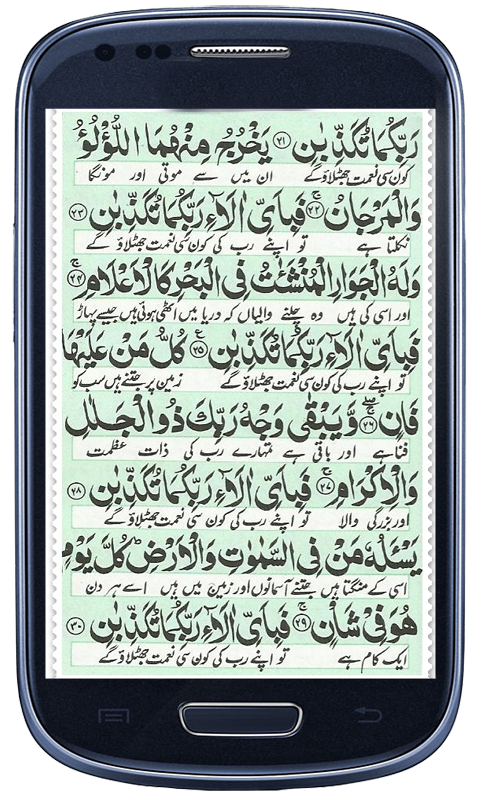 رَبِّكُمَا تُكَذِّبٰنِ ۝۲۱ یَخْرُجُ مِنْهُمَا اللُّؤْلُؤُ
کون سی نعمت جھٹلاؤ گے ان میں سے موتی اور مونگا
وَالْمَرْجَانُ ۝۲۲ۚ فَبِاَیِّ اٰلَآءِ رَبِّكُمَا تُكَذِّبٰنِ ۝۲۳
نکلتا ہے تو اپنے رب کی کون سی نعمت جھٹلاؤ گے
وَلَهُ الْجَوَارِ الْمُنْشَئٰتُ فِی الْبَحْرِ كَالْاَعْلَامِ ۝۲۴ۚ
اور اسی کی ہیں وہ چلنے والیاں کہ دریا میں اٹھی ہوئی ہیں جیسے پہاڑ
فَبِاَیِّ اٰلَآءِ رَبِّكُمَا تُكَذِّبٰنِ ۝۲۵ع كُلُّ مَنْ عَلَیْهَا
تو اپنے رب کی کون سی نعمت جھٹلاؤ گے زمین پر جتنے ہیں سب کو
فَانٍ ۝۲۶ۚۖ وَّیَبْقٰی وَجْهُ رَبِّكَ ذُو الْجَلٰلِ
فنا ہے اور باقی ہے تمہارے رب کی ذات عظمت
وَالْاِكْرَامِ ۝۲۷ۚ فَبِاَیِّ اٰلَآءِ رَبِّكُمَا تُكَذِّبٰنِ ۝۲۸
اور بزرگی والا تو اپنے رب کی کون سی نعمت جھٹلاؤ گے
یَسْـَٔلُهٗ مَنْ فِی السَّمٰوٰتِ وَالْاَرْضِ ؕ كُلَّ یَوْمٍ
اسی کے منگتا ہیں جتنے آسمانوں اور زمین میں ہیں اسے ہر دن
هُوَ فِیْ شَاْنٍ ۝۲۹ۚ فَبِاَیِّ اٰلَآءِ رَبِّكُمَا تُكَذِّبٰنِ ۝۳۰
ایک کام ہے تو اپنے رب کی کون سی نعمت جھٹلاؤ گے